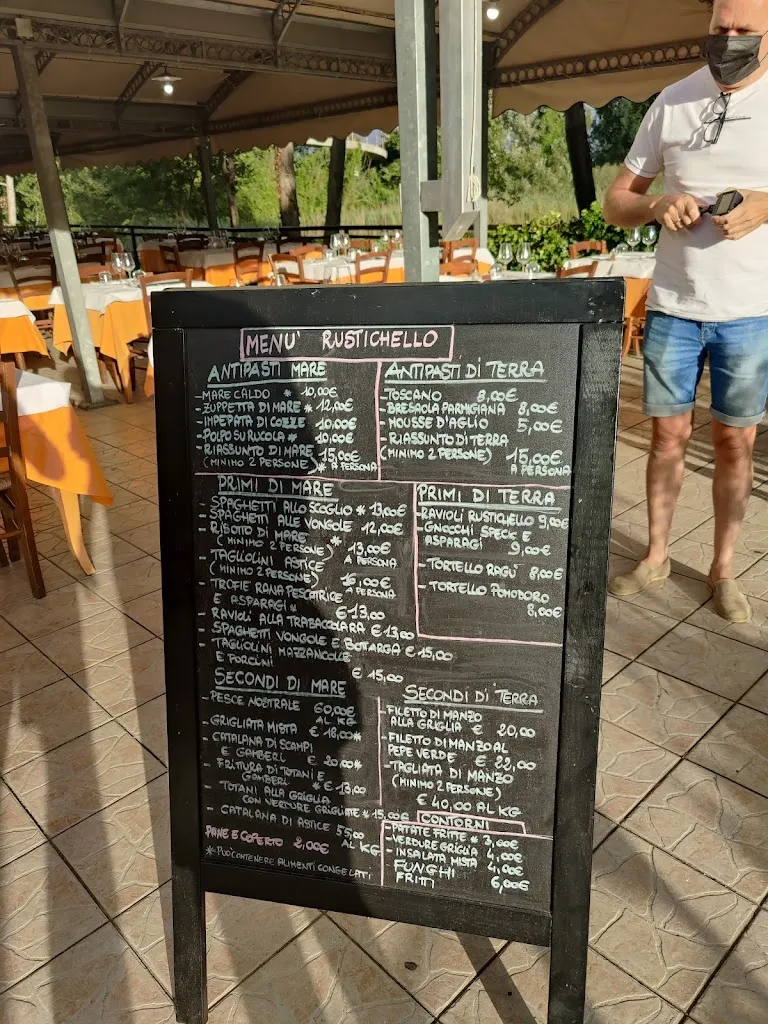 MENU' RUSTICHELLO
ANTIPASTI MARE
- MARE CALDO * 10,00€
- ZUPPETTA DI MARE * 12,00€
- IMPEPATA DI COZZE 10,00€
- POLPO SU RUCOLA * 10,00€
- RIASSUNTO DI MARE 15,00€
(MINIMO 2 PERSONE) * A PERSONA
ANTIPASTI DI TERRA
- TOSCANO 8,00€
- BRESAOLA PARMIGIANA 8,00€
- MOUSSE D'AGLIO 5,00€
- RIASSUNTO DI TERRA
(MINIMO 2 PERSONE) 15,00€
A PERSONA
PRIMI DI MARE
- SPAGHETTI ALLO SCOGLIO * 13,00€
- SPAGHETTI ALLE VONGOLE 12,00€
- RISOTTO DI MARE
(MINIMO 2 PERSONE) * 13,00€
A PERSONA
- TAGLIOLINI ASTICE
(MINIMO 2 PERSONE) 16,00€
A PERSONA
- TROFIE RANA PESCATRICE
E ASPARAGI * €13,00
- RAVIOLI ALLA TRABACCOLARA €13,00
- SPAGHETTI VONGOLE E BOTTARGA €15,00
- TAGLIOLINI MAZZANCOLLE
E PORCINI €15,00
PRIMI DI TERRA
- RAVIOLI RUSTICHELLO 9,00€
- GNOCCHI SPECK E
ASPARAGI 9,00€
- TORTELLO RAGÙ 8,00€
- TORTELLO POMODORO
8,00€
SECONDI DI MARE
- PESCE NOSTRALE 60,00€
AL KG
- GRIGLIATA MISTA € 18,00*
- CATALANA DI SCAMPI
E GAMBERI € 20,00*
- FRITTURA DI TOTANI E
GAMBERI * € 13,00
- TOTANI ALLA GRIGLIA
CON VERDURE GRIGLIATE * 15,00€
- CATALANA DI ASTICE 55,00
AL KG
PANE E COPERTO 2,00€
* PUO' CONTENERE ALIMENTI CONGELATI
SECONDI DI TERRA
- FILETTO DI MANZO
ALLA GRIGLIA € 20,00
- FILETTO DI MANZO AL
PEPE VERDE € 22,00
- TAGLIATA DI MANZO
(MINIMO 2 PERSONE)
€ 40,00 AL KG
CONTORNI
- PATATE FRITTE * 3,00€
- VERDURE GRIGLIA 4,00€
- INSALATA MISTA 4,00€
FUNGHI
FRITTI 6,00€